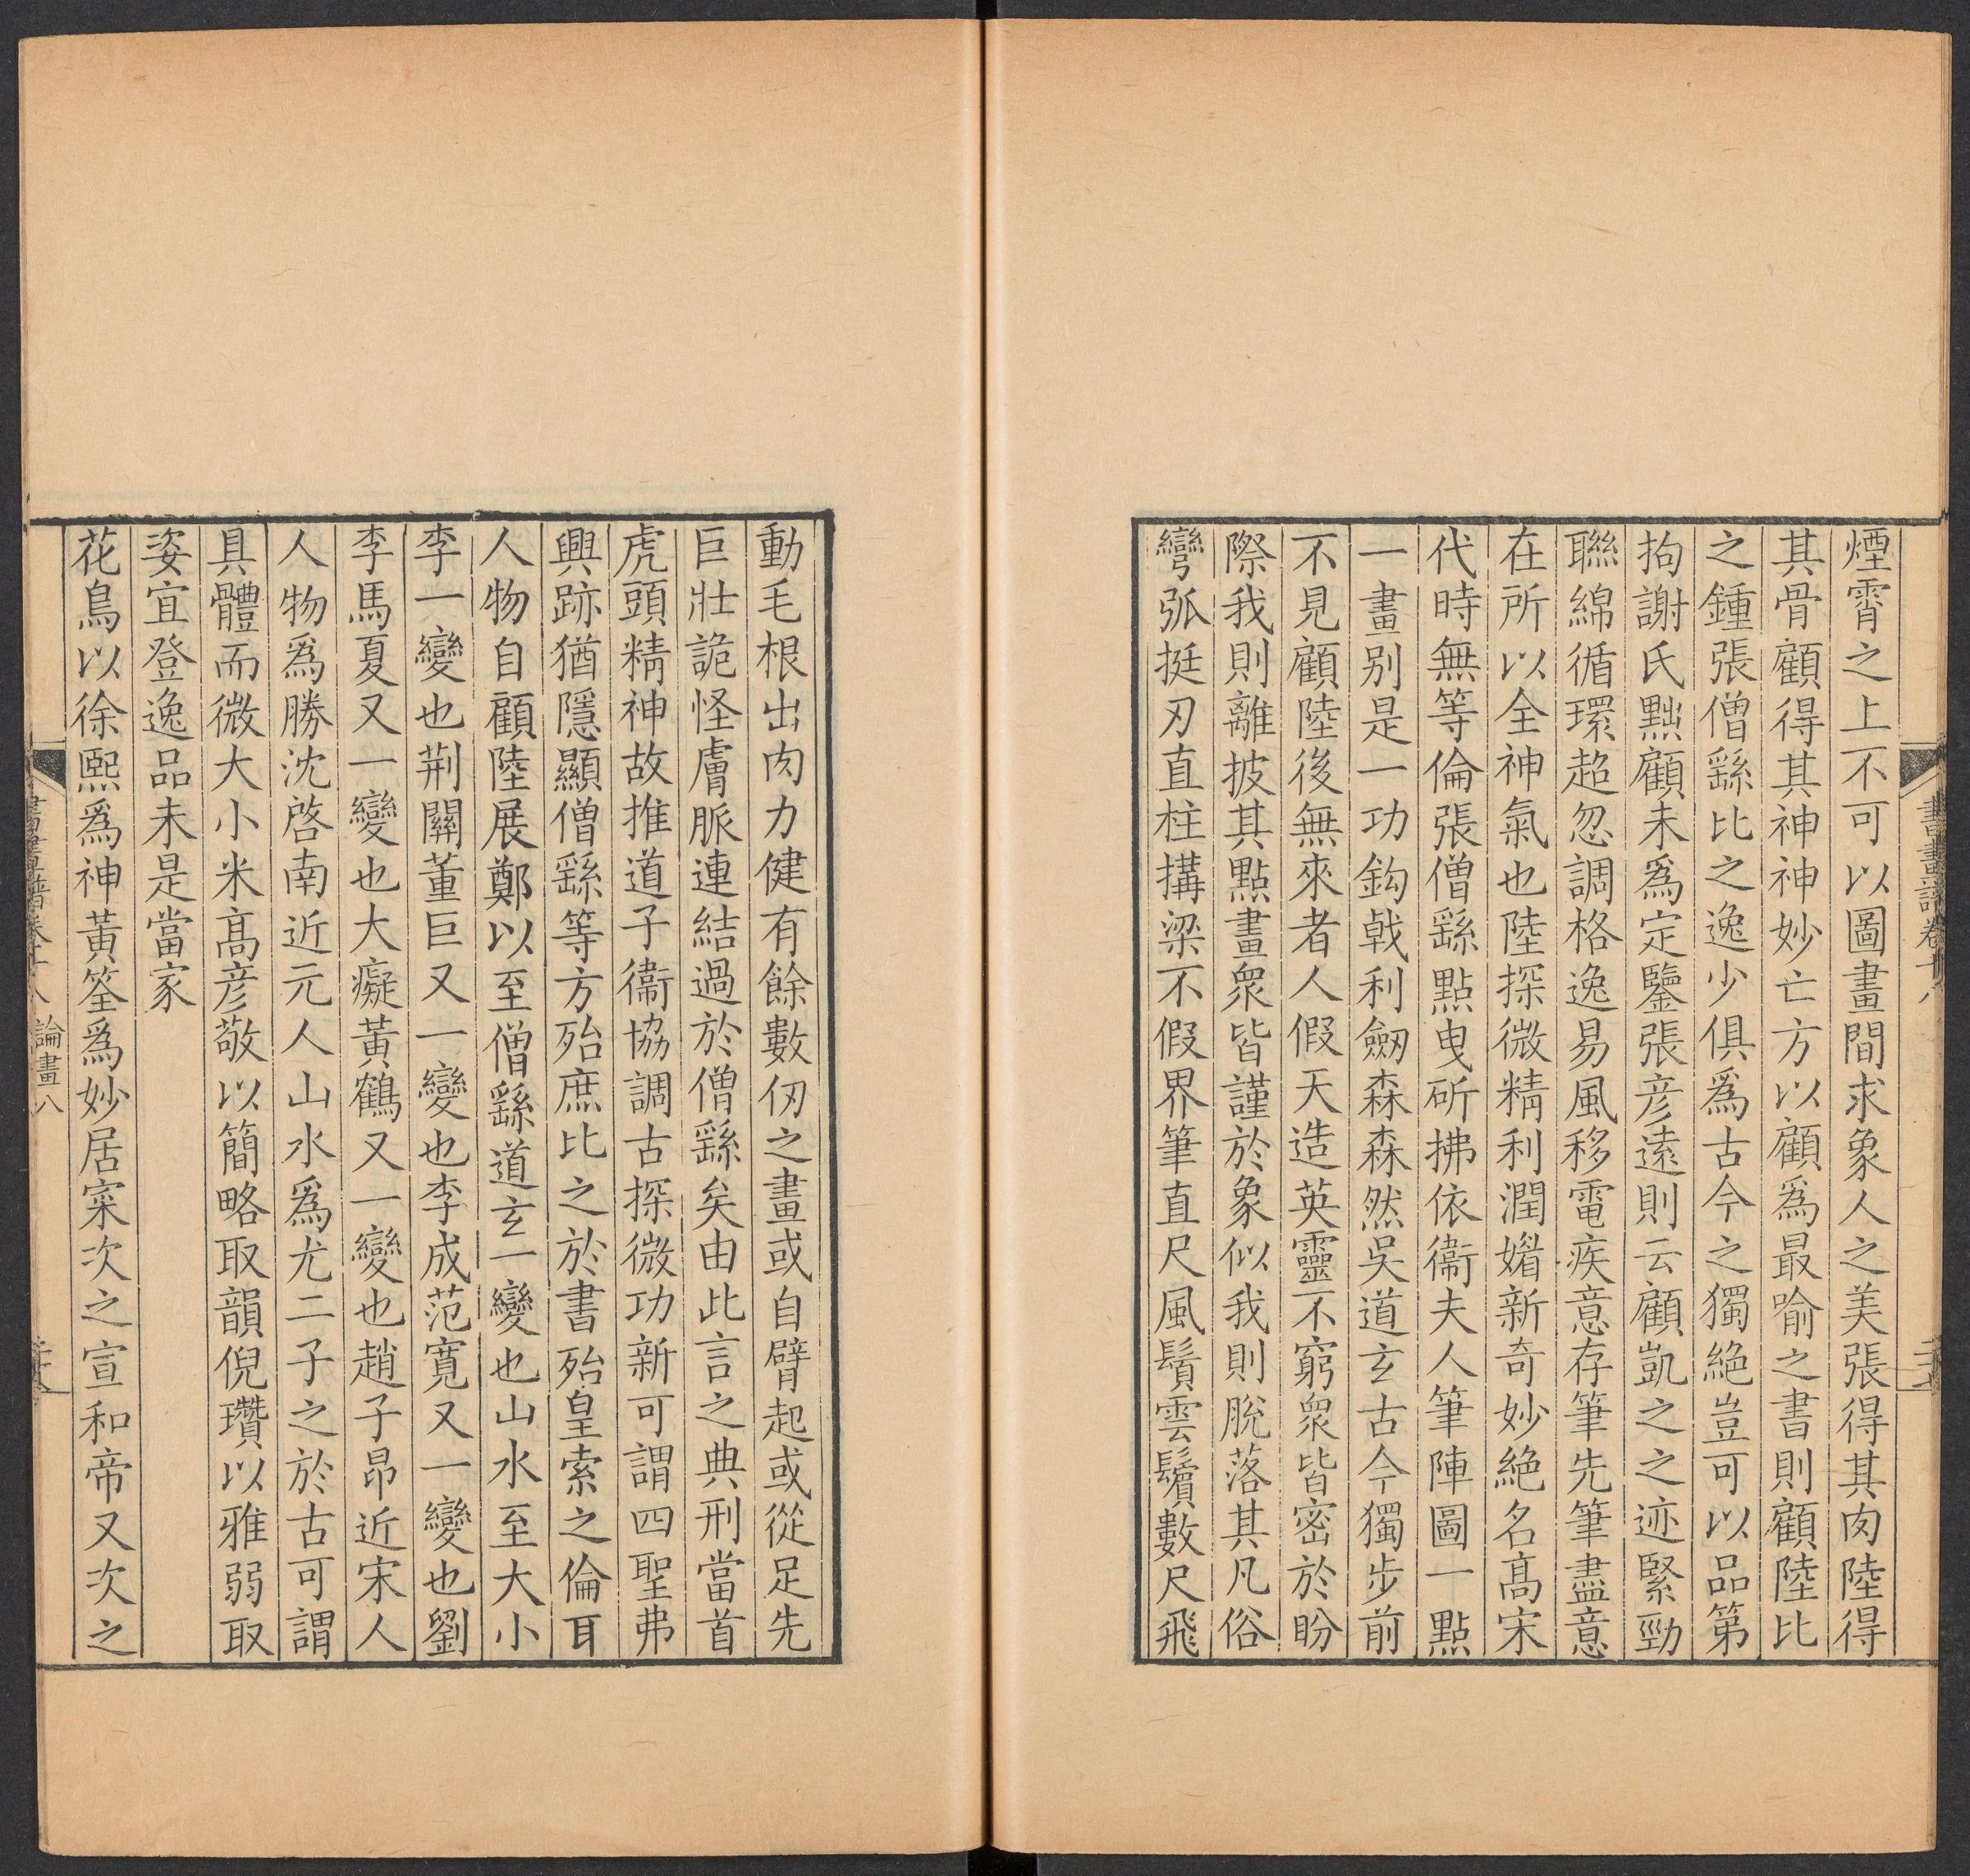 煙霄之上不可以圖畫間求象人之美張得其肉陸得
其骨顧得其神神妙亡方以顧爲最喻之書則顧陸比
之鍾張僧繇比之逸少俱爲古今之獨絶豈可以品第
拘謝氏黜顧未爲定鑒張彥遠則云顧凱之之迹緊勁
聯綿循環超忽調格逸易風移電疾意存筆先筆盡意
在所以全神氣也陸探微精利潤媚新奇妙絶名髙宋
代時無等倫張僧繇點曵斫拂依衞夫人筆陣圖一點
一畫别是一功鈎戟利劒森森然吳道玄古今獨步前
不見顧陸後無來者人假天造英靈不窮衆皆密於盼
際我則離披其點畫衆皆謹於象似我則脫落其凡俗
彎弧挺刃直柱搆梁不假界筆直尺風鬢雲鬚數尺飛
動毛根出肉力健有餘數仞之畫或自臂起或從足先
巨壯詭怪膚脈連結過於僧繇矣由此言之典刑當首
虎頭精神故推道子衞協調古探微功新可謂四聖弗
興跡猶隱顯僧繇等方殆庶比之於書殆皇索之倫耳
人物自顧陸展鄭以至僧繇道玄一變也山水至大小
李一變也荆關董巨又一變也李成范寛又一變也劉
李馬夏又一變也大癡黃鶴又一變也趙子昂近宋人
人物爲勝沈啓南近元人山水爲尤二子之於古可謂
具體而微大小米髙彥敬以簡略取韻倪瓚以雅弱取
姿宜登逸品未是當家
花鳥以徐熙爲神黃筌爲妙居寀次之宣和帝又次之
書畫譜卷十八 論畫八